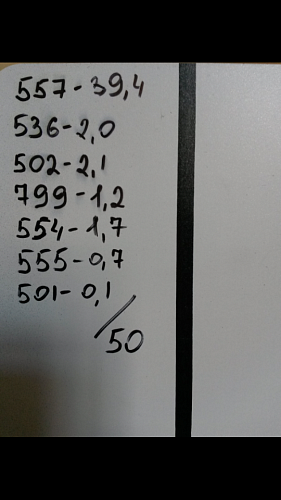 557-39,4
536-2,0
502-2,1
799-1,2
554-1,7
555-0,7
501-0,1
/50